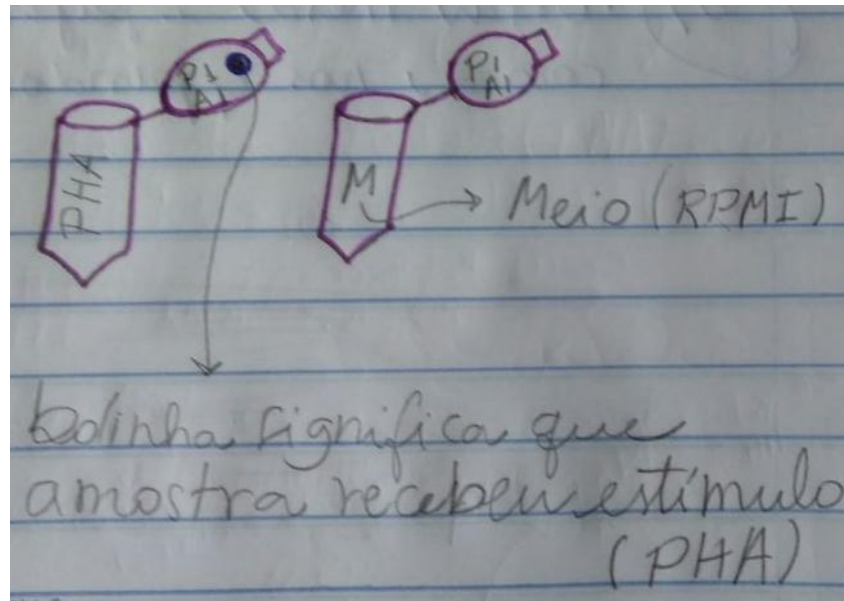 P1
A1
P1
A1
PHA
M
Meio (RPMI)
bolinha significa que
amostra recebeu estímulo
(PHA)